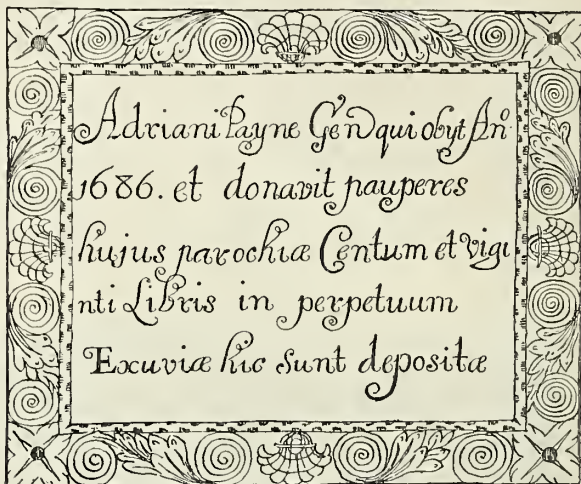 Adriani Payne Gen qui obyt Ano
1686. et donavit pauperes
hujus parochiæ Centum et vigi
nti Libris in perpetuum
Exuviæ hic sunt depositæ